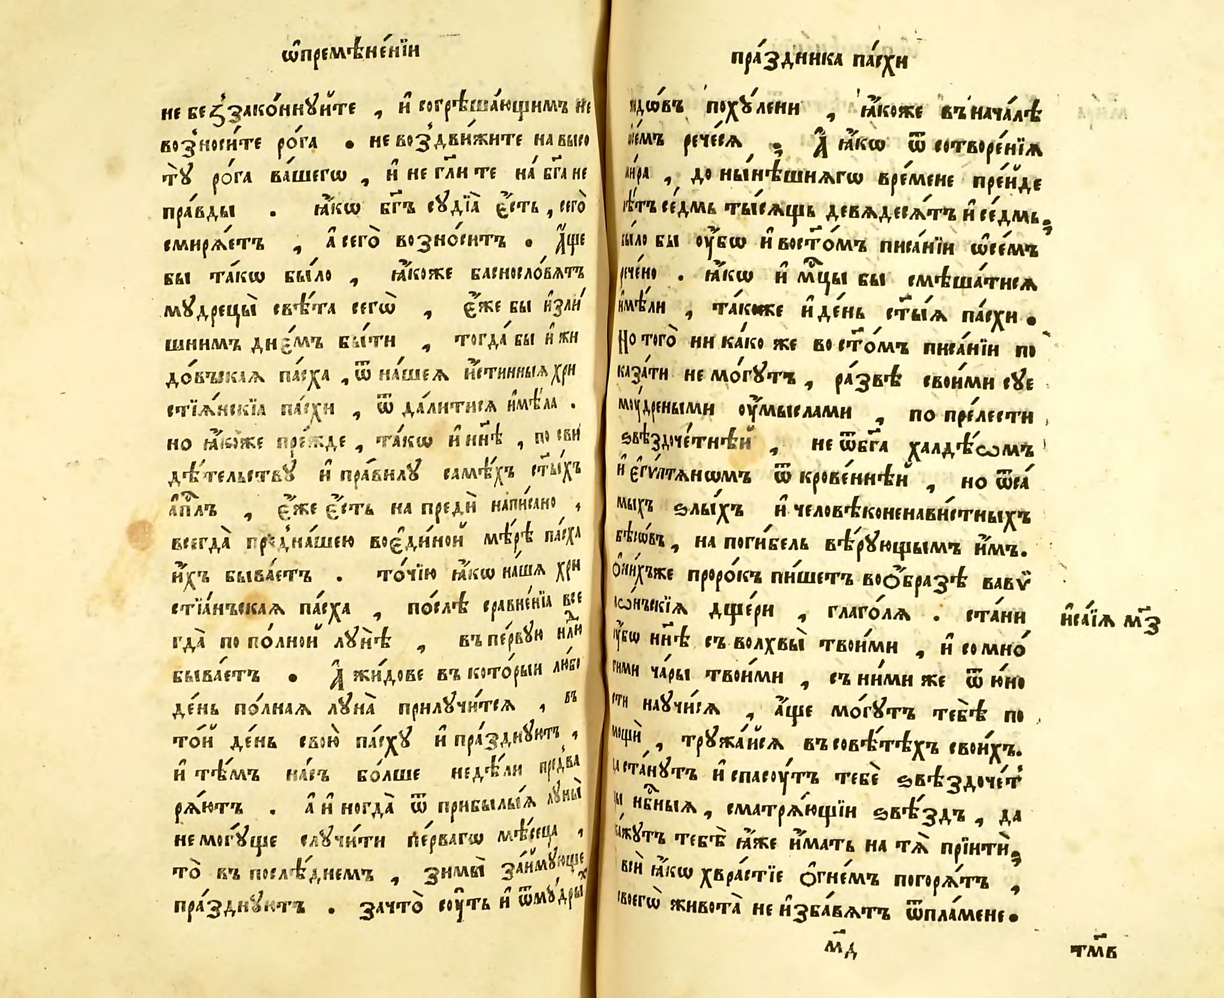 ѿпремѣне́нїи
не беꙁзако́ннꙋйте , и҆ согрѣша́ющимъ не
возноси́те ро́га . не воздви́жите на высо
тꙋ̀ ро́га ва́шегѡ , и҆ не гл҃ите на́ бг҃а не
пра́вды . ꙗ҆́кѡ бг҃ъ сꙋдїа̀ є҆́сть , сего̀
смирѧ́етъ , а҆ сего̀ возно́ситъ . А҆́ще
бы та́кѡ бы́ло , ꙗ҆́коже баснословѧ́тъ
мꙋдрецы̀ свѣ́та сегѡ̀ , є҆́же бы и҆зли́
шнимъ дне́мъ бы́ти , тогда́ бы и҆ жи
до́вꙿскаѧ па́сха , ѿ на́шеѧ и҆́стинныѧ хри
стїѧ́нскїа па́схи , ѿ дали́тисѧ и҆мѣ́ла .
но ꙗ҆́коже пре́жде , та́кѡ и҆ нн҃ѣ , по сви
дѣ́тельствꙋ и҆ пра́вилꙋ самѣ́хъ ст҃ы́хъ
а҆пⷭ҇лъ , є҆́же є҆́сть на предѝ напи́сано ,
всегда̀ пред̾на́шею воє҆ди́ной мѣ́рѣ па́сха
и҆́хъ быва́етъ . то́чїю ꙗ҆́кѡ на́ша хри
стїа́нъскаѧ па́сха , по́слѣ сравне́нїа все
гда̀ по по́лной лꙋнѣ̀ , въ пе́рвꙋю нлⷣи
быва́етъ . А҆ жи́дове въ кото́рыи ли́бо
де́нь по́лнаѧ лꙋна̀ прилꙋчи́тсѧ , въ
то́й де́нь свою̀ па́схꙋ и҆ пра́зднꙋютъ ,
и҆ тѣ́мъ на́съ бо́лше недѣ́ли пред̾ва
рѧ́ютъ . а҆ и҆ ногда̀ ѿ прибылы́ѧ лꙋны̀
не могꙋ́ще слꙋчи́ти пе́рвагѡ мѣ́сѧца ,
то̀ въ послѣ́днемъ , зимы̀ займꙋ́юще
пра́зднꙋютъ . зачто̀ сꙋ́ть и҆ ѿмꙋ́дрыⷯ
пра́здника па́схи
идѡ́въ похꙋ́лени , ꙗ҆́коже въ нача́лѣ
всѣ́мъ рече́сѧ . А҆ ꙗ҆́кѡ ѿ сотворе́нїѧ
ми́ра , до ны́нѣшнѧгѡ вре́мене пре́йде
лѣ́тъ се́дмь ты́сѧщь девѧдесѧ́тъ и҆ се́дмь.
бы́ло бы ᲂу҆́бѡ и҆ востⷪ҇мъ писа́нїи ѡ҆се́мъ
рече́но . ꙗ҆́кѡ и҆ мⷭ҇цы бы смѣша́тисѧ
и҆мѣ́ли , та́коже и҆ де́нь ст҃ы́ѧ па́схи .
Но того̀ ни ка́ко же во стⷪ҇мъ писа́нїи по
каза́ти не мо́гꙋтъ , ра́звѣ свои́ми сꙋе
мꙋ́дреными ᲂу҆́мыслами , по пре́лести
ѕвѣздоче́тнѣй , не ѿбг҃а халдѣ́ѡмъ
и҆ є҆гѵ́птѧнѡмъ ѿ крове́ннѣй , но ѿса
мыхъ ѕлы́хъ и҆ человѣконенави́стныхъ
бѣсѡ́въ , на поги́бель вѣ́рꙋющымъ и҆́мъ.
Ѻ҆ни́хъже проро́къ пи́шетъ воѻ҆́бразѣ вавѵ
лѡ́нъскїѧ дще́ри , глаго́лѧ . ста́ни
ᲂу҆́бѡ нн҃ѣ съ волхвы̀ твои́ми , и҆ со мно́
гими ча́ры твои́ми , съ ни́ми же ѿ ю҆́но
сти наꙋчи́сѧ , а҆́ще мо́гꙋтъ тебѣ̀ по
мощѝ , трꙋжа́йсѧ въ совѣ́тѣхъ свои́хъ.
да ста́нꙋтъ и҆ спасꙋ́тъ тебѐ ѕвѣздоче́т
цы нбⷭ҇ныѧ , сматрѧ́ющїи ѕвѣ́здъ , да
ска́жꙋтъ тебѣ̀ ꙗ҆́же и҆́мать на тѧ̀ прїитѝ.
всѝ ꙗ҆́кѡ хврастїе ѻ҆гне́мъ погорѧ́тъ ,
своегѡ̀ живота̀ не и҆збавѧ́тъ ѿпла́мене.
и҆са́їѧ м҃з
м҃д
тм҃в